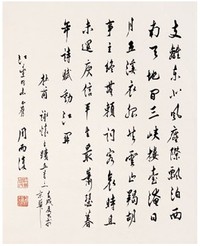 支離东北風塵際飄泊西
南天地間三峡樓臺淹日
月五溪衣服共雲山羯胡
事主終無賴詞客哀時且
未還庾信平生最蕭瑟暮
年詩賦動江関
杜甫
周而復